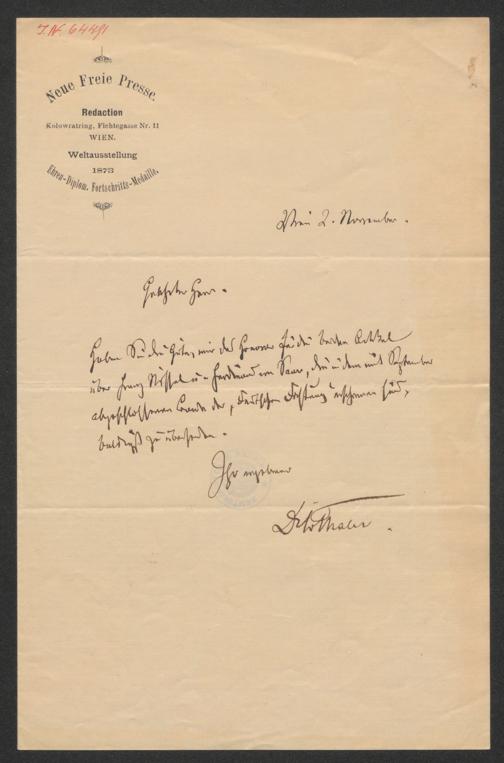 J.N. 64491
Neue Freie Presse.
Redaction
Kolowratring, Fichtegasse Nr. 11
WIEN.
Weltausstellung
1873
Ehren-Diplom. Fortschritts-Medaille.
Wien 2. November.
Geehrter Herr.
Haben Sie die Güte, mir das Honorar für die beiden Artikel
über Franz Nissel u. Ferdinand von Saar, die in dem mit September
abgeschlossenen Bande der „Deutschen Dichtung" erschienen sind,
baldigst zu übersenden.
Ihr ergebener